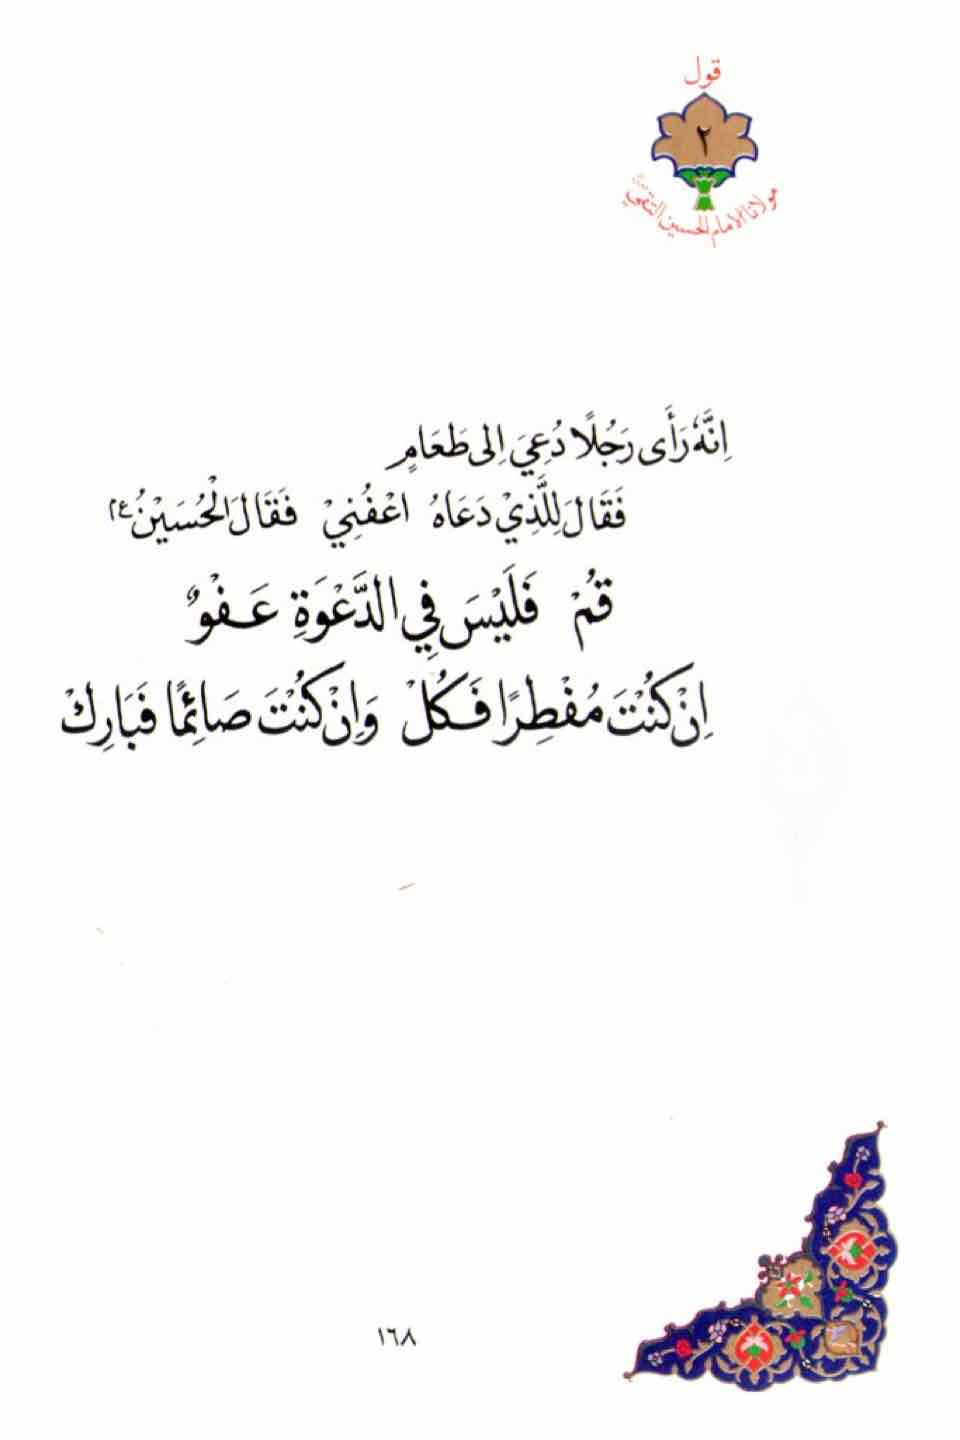 قول
٢
مولانا الامام الحسين التقي
اِنَّهُ رَأَى رَجُلًا دُعِيَ اِلى طَعَامٍ
فَقَالَ لِلَّذِيْ دَعَاهُ اعْفُنِيْ فَقَالَ الْحُسَيْنُ ع م
قُمْ فَلَيْسَ فِي الدَّعْوَةِ عَفْوٌ
اِنْ كُنْتَ مُفْطِرًا فَكُلْ وَاِنْ كُنْتَ صَائِمًا فَبَارِكْ
١٦٨